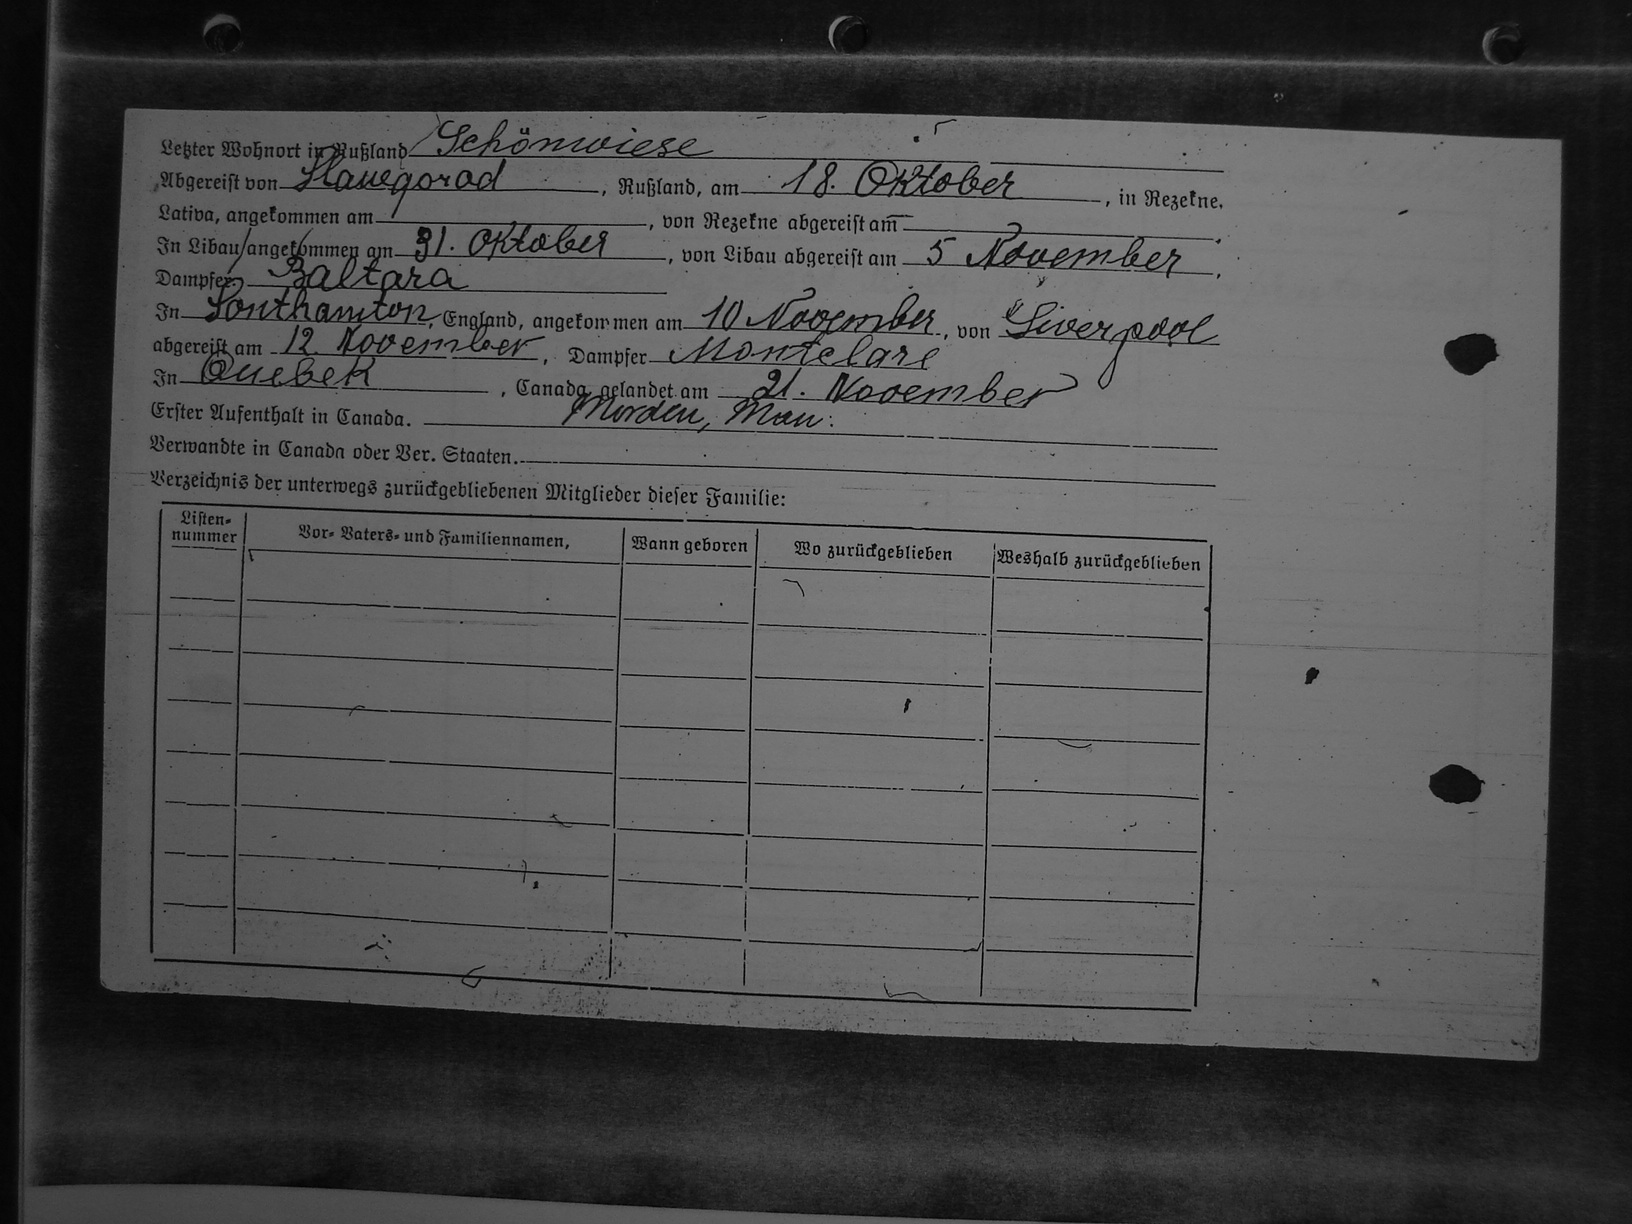 Letzter Wohnort in Rußland Schönwiese
Abgereist von Slawgorod, Rußland, am 18. Oktober, in Rezekne,
Lativa, angekommen am , von Rezekne abgereist am
In Libau angekommen am 31. Oktober, von Libau abgereist am 5 November.
Dampfer. Baltara
In Southamton, England, angekommen am 10 November, von Liverpool
abgereist am 12 November, Dampfer Montclare
In Quebek, Canada gelandet am 21. November
Erster Aufenthalt in Canada. Morden, Man:
Verwandte in Canada oder Ver. Staaten.
Verzeichnis der unterwegs zurückgebliebenen Mitglieder dieser Familie:
Listen-nummer Vor- Vaters- und Familiennamen, Wann geboren Wo zurückgeblieben Weshalb zurückgeblieben